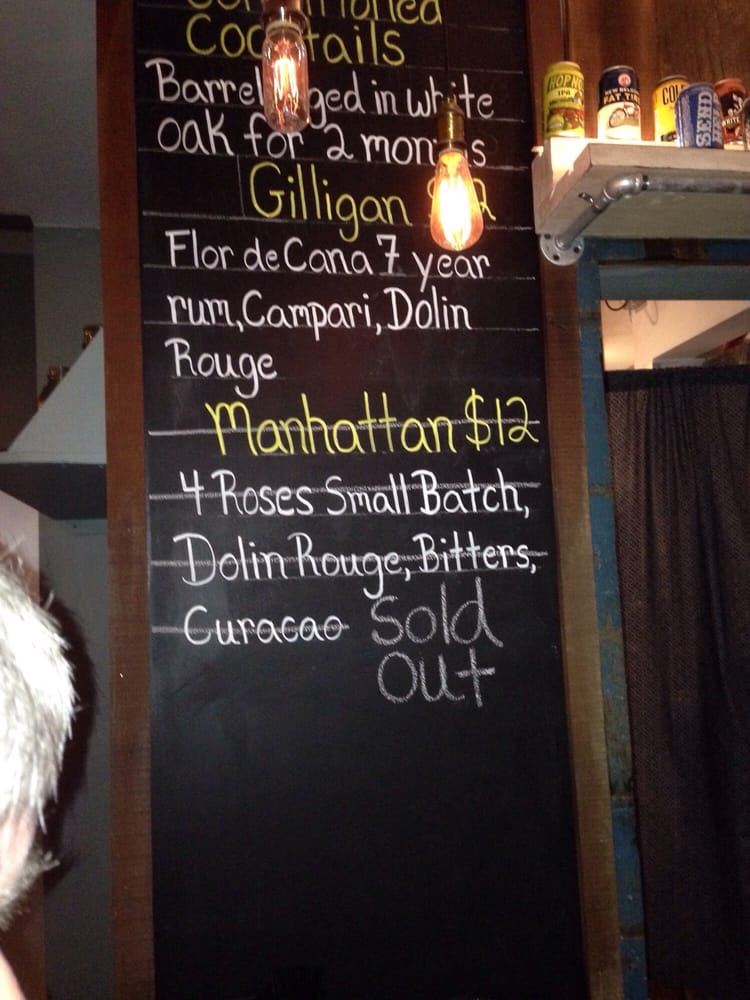 Cocktails
Barrel aged in white
oak for 2 months
Gilligan $12
Flor de Cana 7 year
rum, Campari, Dolin
Rouge
Manhattan $12
4 Roses Small Batch,
Dolin Rouge, Bitters,
Curacao Sold
Out
HOP
IPA
FAT TIRE
SEND
WHITE